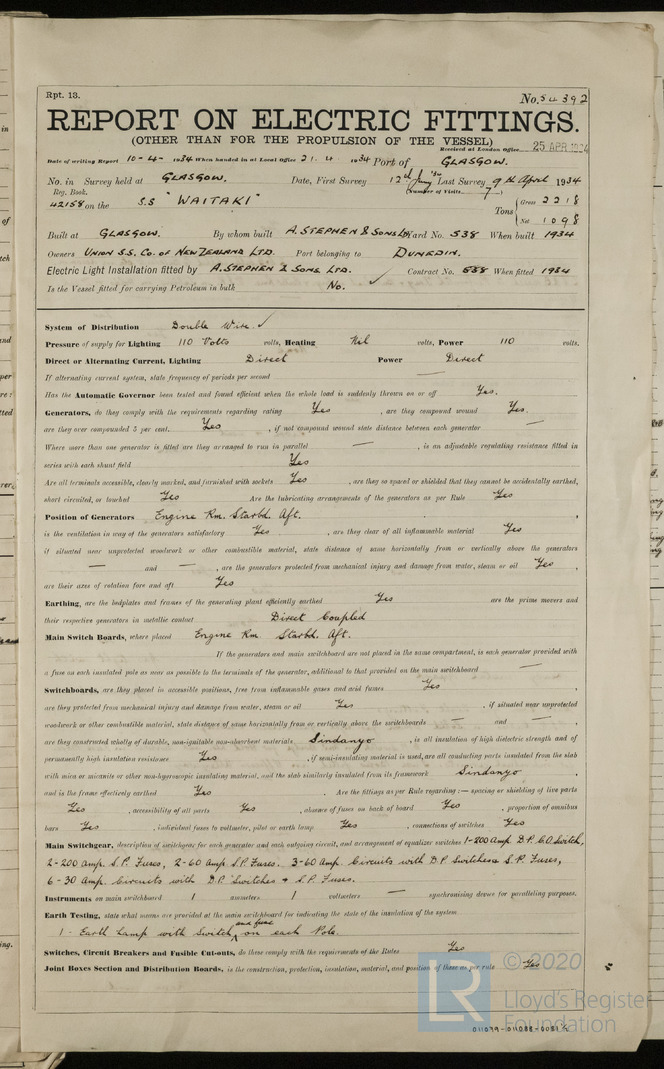 Rpt. 13. No. 54392
REPORT ON ELECTRIC FITTINGS.
(OTHER THAN FOR THE PROPULSION OF THE VESSEL)
Received at London Office 25 APR 1934
Date of writing Report 10-4- 1934 When handed in at Local Office 21.4. 1934 Port of GLASGOW.
No. in Survey held at GLASGOW. Date, First Survey 12th Last Survey 9th April 1934
Reg. Book. (Number of Visits 7)
42158 on the S.S "WAITAKI" Tons { Gross 2218
Net 1098
Built at GLASGOW. By whom built A. STEPHEN & SONS LTD Yard No. 538 When built 1934
Owners UNION S.S. CO. OF NEW ZEALAND LTD. Port belonging to DUNEDIN.
Electric Light Installation fitted by A. STEPHEN & SONS LTD. Contract No. 538 When fitted 1934
Is the Vessel fitted for carrying Petroleum in bulk No. ✓
System of Distribution Double Wire. ✓
Pressure of supply for Lighting 110 Volts volts, Heating Nil volts, Power 110 volts.
Direct or Alternating Current, Lighting Direct Power Direct
If alternating current system, state frequency of periods per second —
Has the Automatic Governor been tested and found efficient when the whole load is suddenly thrown on or off Yes.
Generators, do they comply with the requirements regarding rating Yes, are they compound wound Yes.
are they over compounded 5 per cent. Yes, if not compound wound state distance between each generator —
Where more than one generator is fitted are they arranged to run in parallel —, is an adjustable regulating resistance fitted in
series with each shunt field Yes
Are all terminals accessible, clearly marked, and furnished with sockets Yes, are they so spaced or shielded that they cannot be accidentally earthed,
short circuited, or touched Yes Are the lubricating arrangements of the generators as per Rule Yes
Position of Generators Engine Rm. Starbd. Aft.
is the ventilation in way of the generators satisfactory Yes, are they clear of all inflammable material Yes
if situated near unprotected woodwork or other combustible material, state distance of same horizontally from or vertically above the generators
— and —, are the generators protected from mechanical injury and damage from water, steam or oil Yes,
are their axes of rotation fore and aft Yes
Earthing, are the bedplates and frames of the generating plant efficiently earthed Yes are the prime movers and
their respective generators in metallic contact Direct Coupled
Main Switch Boards, where placed Engine Rm. Starbd. Aft.
If the generators and main switchboard are not placed in the same compartment, is each generator provided with
a fuse on each insulated pole as near as possible to the terminals of the generator, additional to that provided on the main switchboard —
Switchboards, are they placed in accessible positions, free from inflammable gases and acid fumes Yes,
are they protected from mechanical injury and damage from water, steam or oil Yes, if situated near unprotected
woodwork or other combustible material, state distance of same horizontally from or vertically above the switchboards — and —,
are they constructed wholly of durable, non-ignitable non-absorbent materials Sindanyo, is all insulation of high dielectric strength and of
permanently high insulation resistance Yes, if semi-insulating material is used, are all conducting parts insulated from the slab
with mica or micanite or other non-hygroscopic insulating material, and the slab similarly insulated from its framework Sindanyo,
and is the frame effectively earthed Yes. Are the fittings as per Rule regarding:— spacing or shielding of live parts
Yes, accessibility of all parts Yes, absence of fuses on back of board Yes, proportion of omnibus
bars Yes, individual fuses to voltmeter, pilot or earth lamp Yes, connections of switches Yes
Main Switchgear, description of switchgear for each generator and each outgoing circuit, and arrangement of equalizer switches 1-200 Amp. D.P. C.O. Switch,
2-200 Amp. S.P. Fuses, 2-60 Amp. S.P. Fuses. 3-60 Amp. Circuits with D.P. Switches & S.P. Fuses,
6-30 Amp. Circuits with D.P. Switches & S.P. Fuses.
Instruments on main switchboard 1 ammeters 1 voltmeters — synchronising device for paralleling purposes.
Earth Testing, state what means are provided at the main switchboard for indicating the state of the insulation of the system
1- Earth Lamp with Switch and fuse on each Pole.
Switches, Circuit Breakers and Fusible Cut-outs, do these comply with the requirements of the Rules Yes
Joint Boxes Section and Distribution Boards, is the construction, protection, insulation, material, and position of these as per rule Yes
© 2020
LR Lloyd's Register
Foundation
011079-011088-0051½